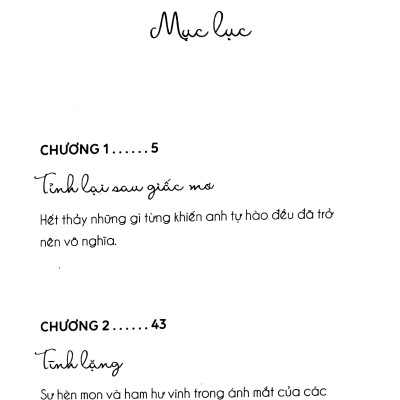 Mục lục
CHƯƠNG 1 . . . . . . 5
Tỉnh lại sau giấc mơ
Hết thảy những gì từng khiến anh tự hào đều đã trở
nên vô nghĩa.
CHƯƠNG 2 . . . . . . 43
Tĩnh lặng
Sự hèn mọn và ham hư vinh trong ánh mắt của các